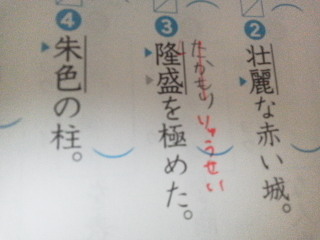 ❷
壮麗な赤い城。
❸
たかもり
りゅうせい
隆盛を極めた。
❹
朱色の柱。